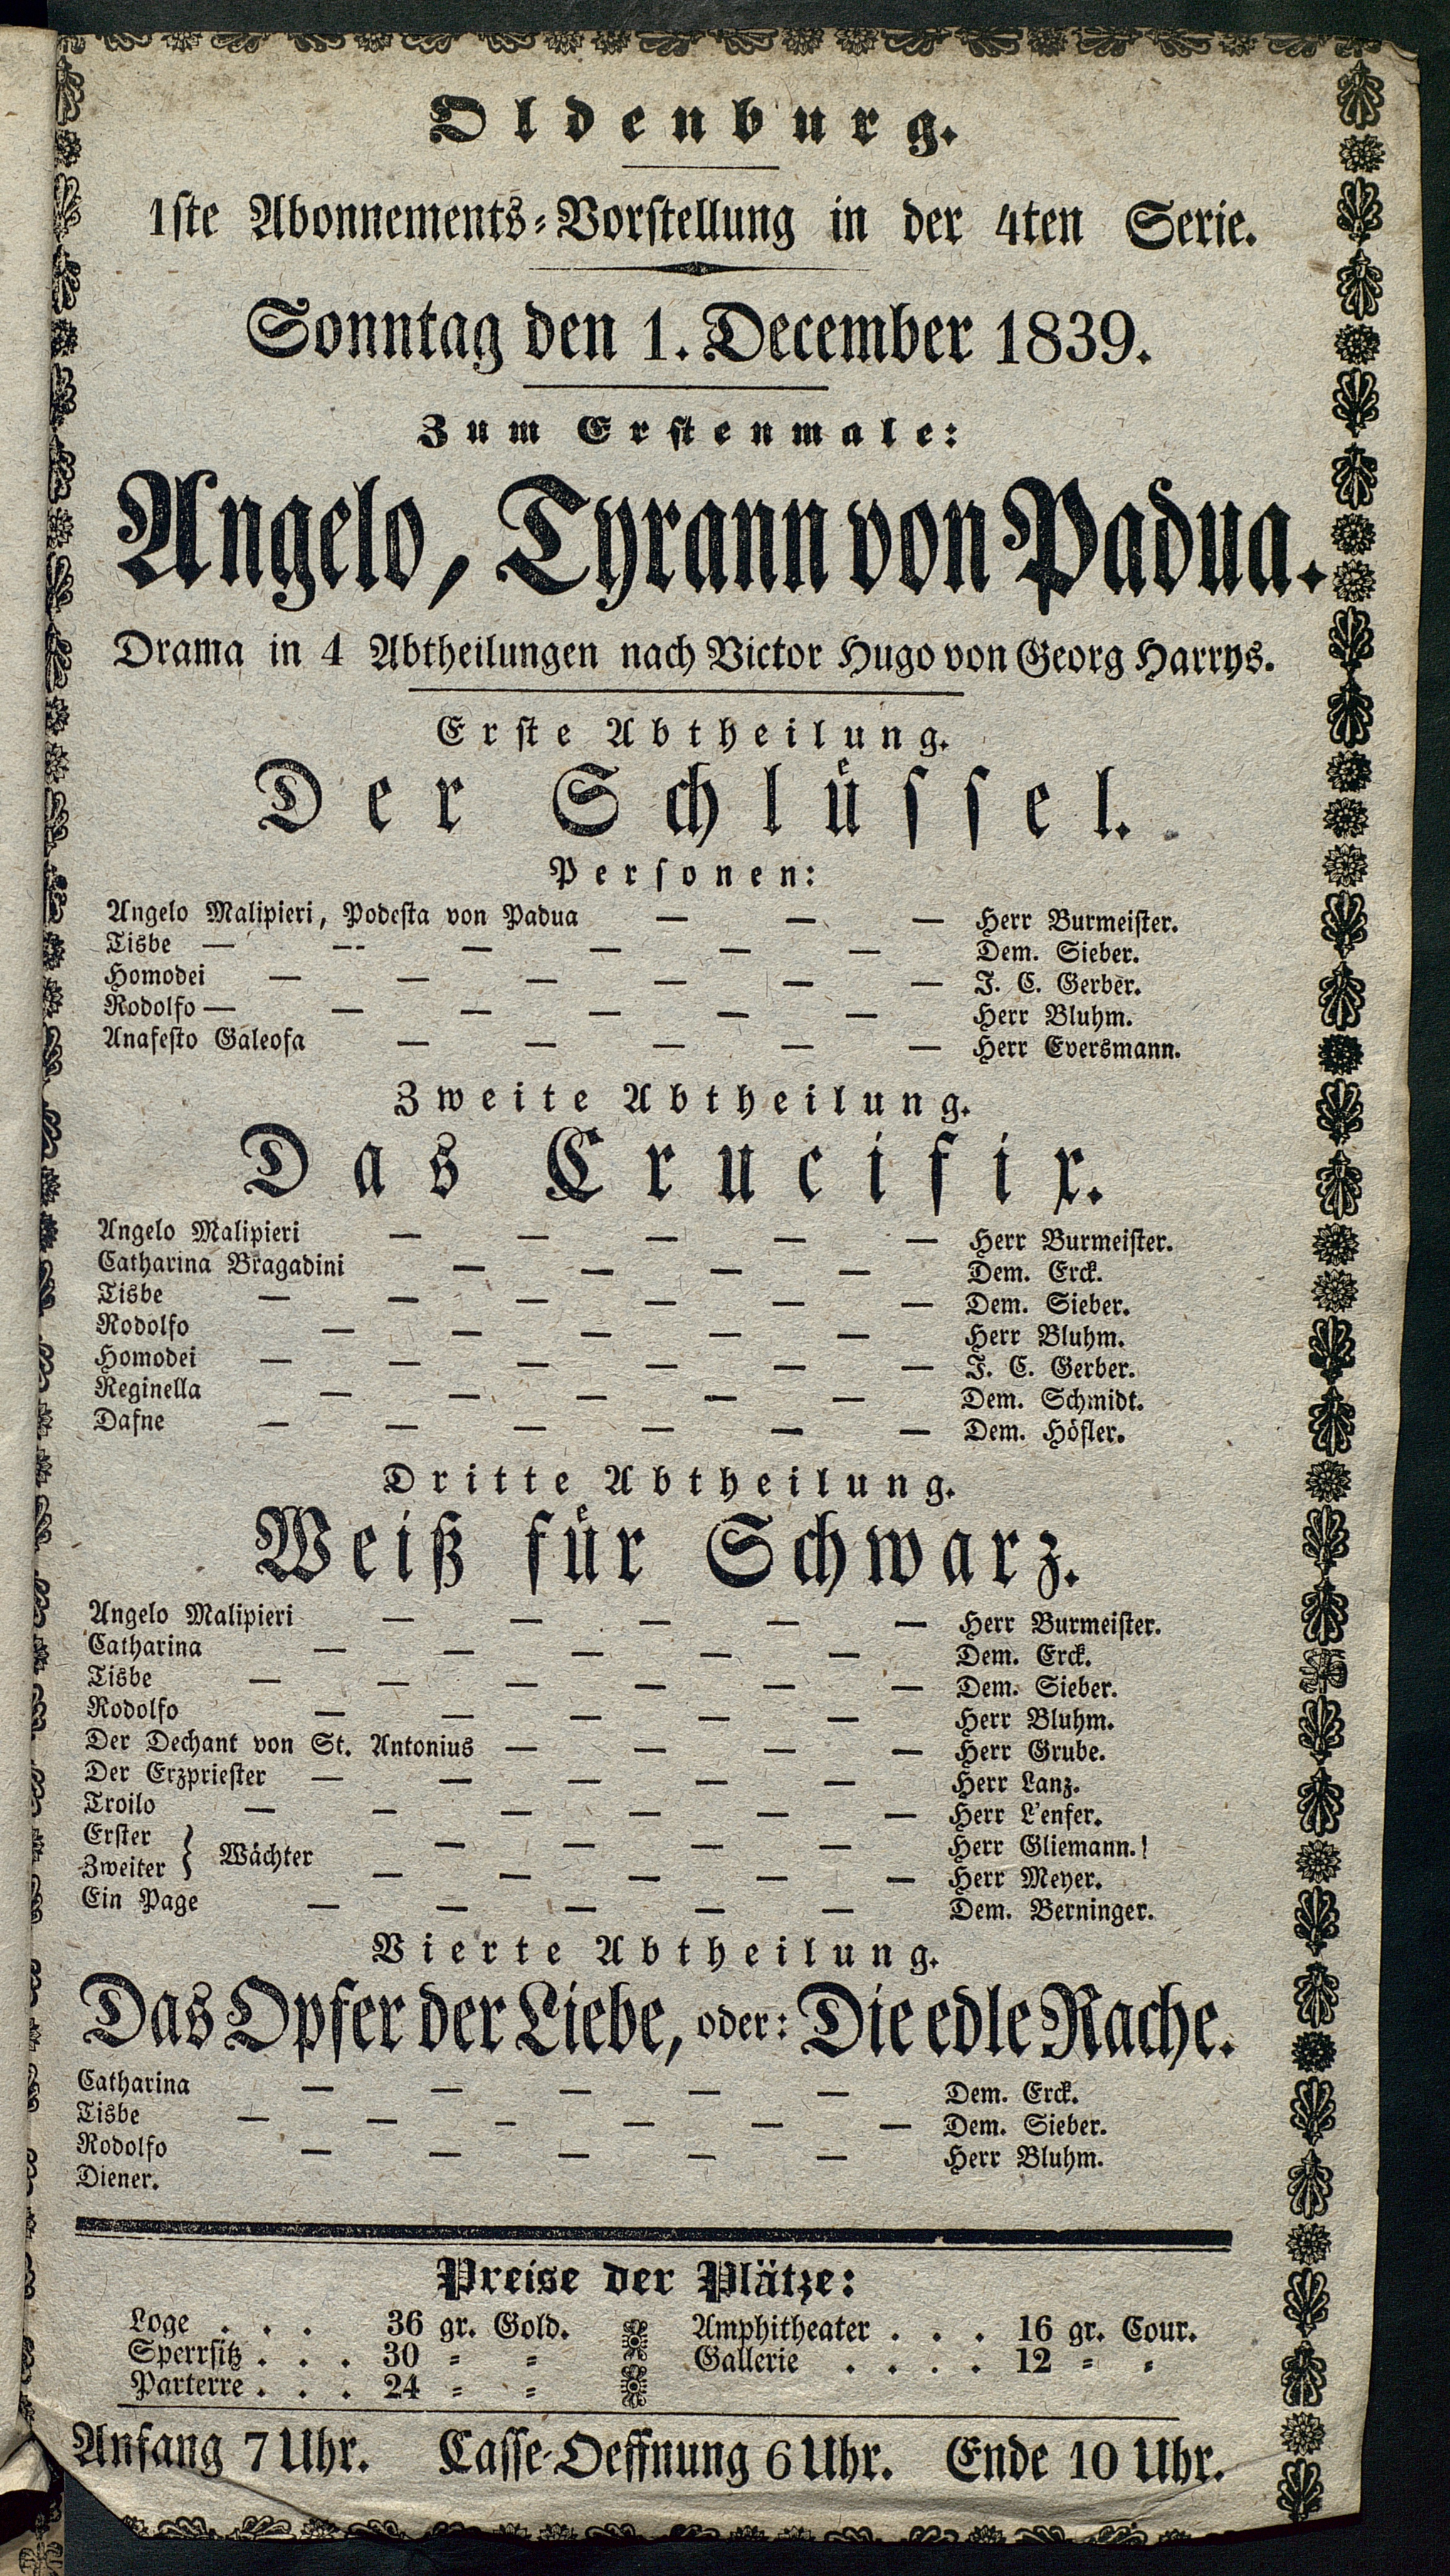 Oldenburg.
1ste Abonnements-Vorstellung in der 4ten Serie.
Sonntag den 1. December 1839.
Zum Erstenmale:
Angelo, Tyrann von Padua.
Drama in 4 Abtheilungen nach Victor Hugo von Georg Harrys.
Erste Abtheilung.
Der Schlüssel.
Personen:
Angelo Malipieri, Podesta von Padua — — — Herr Burmeister.
Tisbe — — — — — — Dem. Sieber.
Homodei — — — — — — J. C. Gerber.
Rodolfo — — — — — — Herr Bluhm.
Anafesto Galeofa — — — — — Herr Eversmann.
Zweite Abtheilung.
Das Crucifix.
Angelo Malipieri — — — — — Herr Burmeister.
Catharina Bragadini — — — — Dem. Erck.
Tisbe — — — — — — Dem. Sieber.
Rodolfo — — — — — Herr Bluhm.
Homodei — — — — — — J. C. Gerber.
Reginella — — — — — Dem. Schmidt.
Dafne — — — — — — Dem. Höfler.
Dritte Abtheilung.
Weiß für Schwarz.
Angelo Malipieri — — — — — Herr Burmeister.
Catharina — — — — — Dem. Erck.
Tisbe — — — — — — Dem. Sieber.
Rodolfo — — — — — Herr Bluhm.
Der Dechant von St. Antonius — — — — Herr Grube.
Der Erzpriester — — — — — Herr Lanz.
Troilo — — — — — — Herr L'enfer.
Erster } Wächter — — — — Herr Gliemann.
Zweiter } — — — — — Herr Meyer.
Ein Page — — — — — Dem. Berninger.
Vierte Abtheilung.
Das Opfer der Liebe, oder: Die edle Rache.
Catharina — — — — — Dem. Erck.
Tisbe — — — — — — Dem. Sieber.
Rodolfo — — — — — Herr Bluhm.
Diener.
Preise der Plätze:
Loge . . . 36 gr. Gold.
Sperrsitz . . . 30 = =
Parterre . . . 24 = =
Amphitheater . . . 16 gr. Cour.
Gallerie . . . . 12 = =
Anfang 7 Uhr. Casse-Oeffnung 6 Uhr. Ende 10 Uhr.